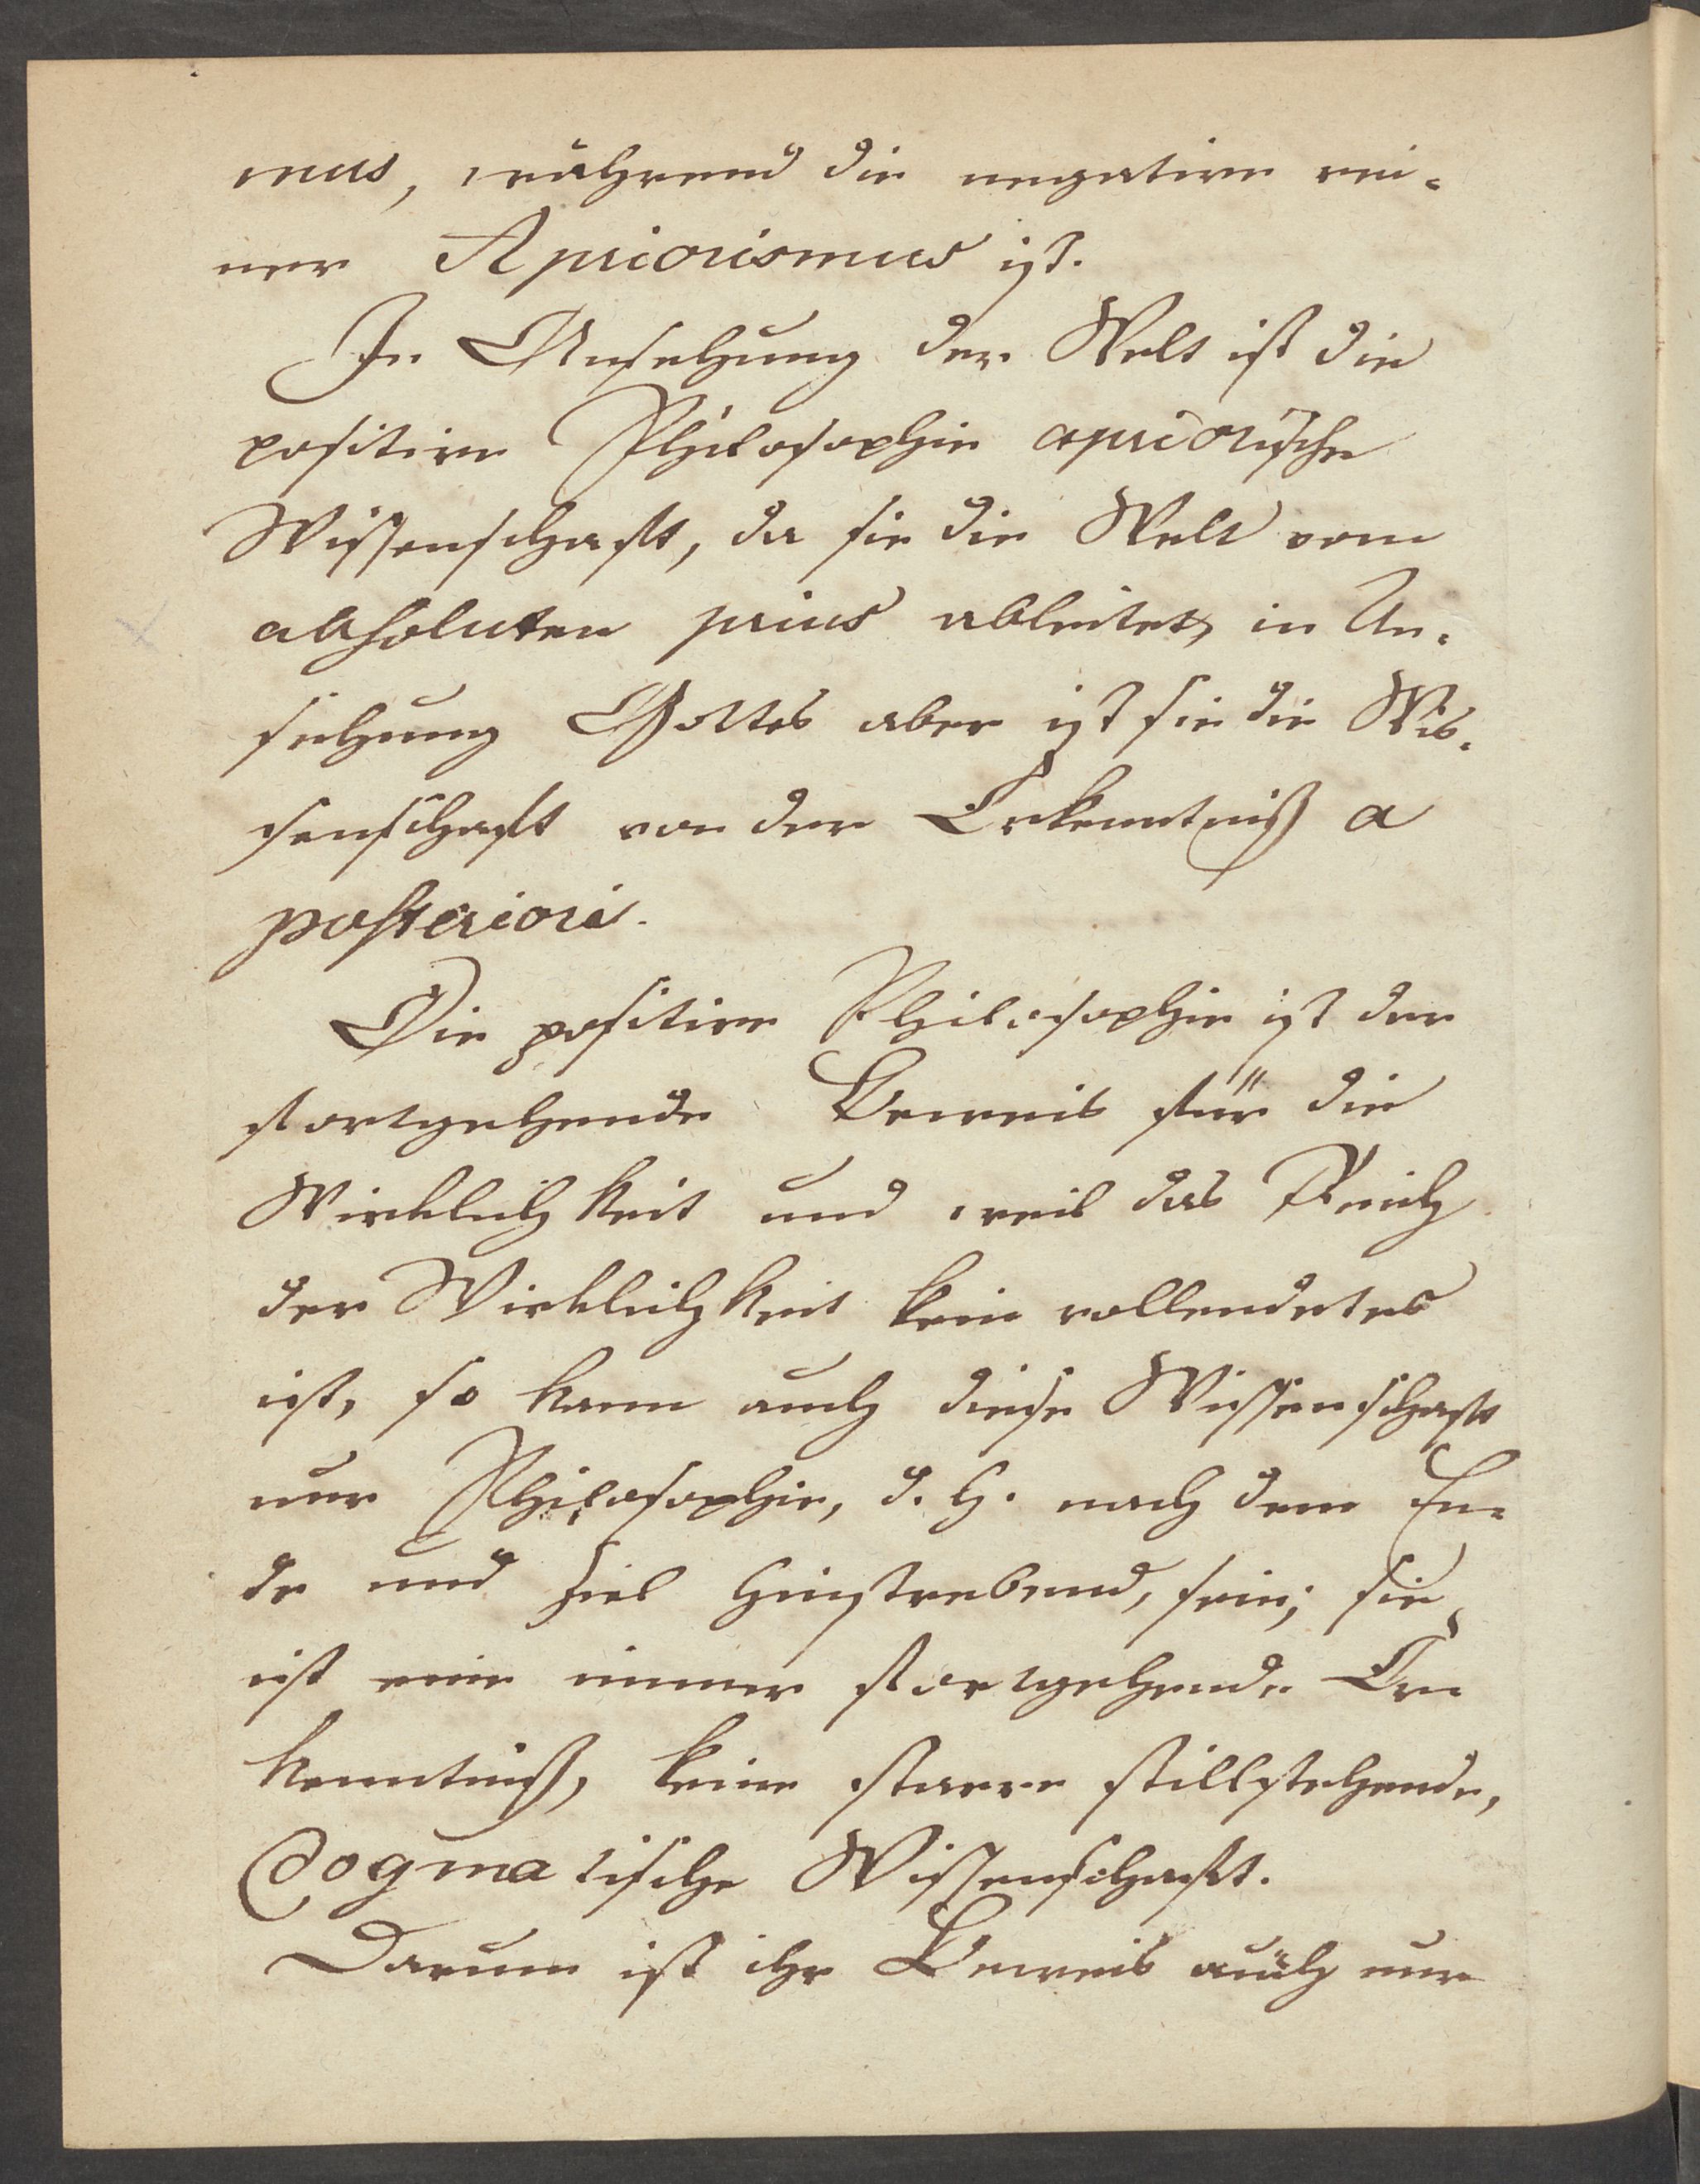 mus, während die negative rei-
ner Apriorismus ist.
In Ansehung der Welt ist die
positive Philosophie apriorische
Wissenschaft, da sie die Welt vom
absoluten prius ableitet, in An-
sehung Gottes aber ist sie die Wis-
senschaft von der Erkenntniß a
posteriori.
Die positive Philosophie ist der
fortgehende Beweis für die
Wirklichkeit und weil das Reich
der Wirklichkeit kein vollendetes
ist, so kann auch diese Wissenschaft
nur Philosophie, d. h. nach dem En-
de und Ziel hinstrebend, sein; sie
ist eine immer fortgehende Er-
kenntniß, keine starre stillstehende,
dogmatische Wissenschaft.
Darum ist ihr Beweis auch nur